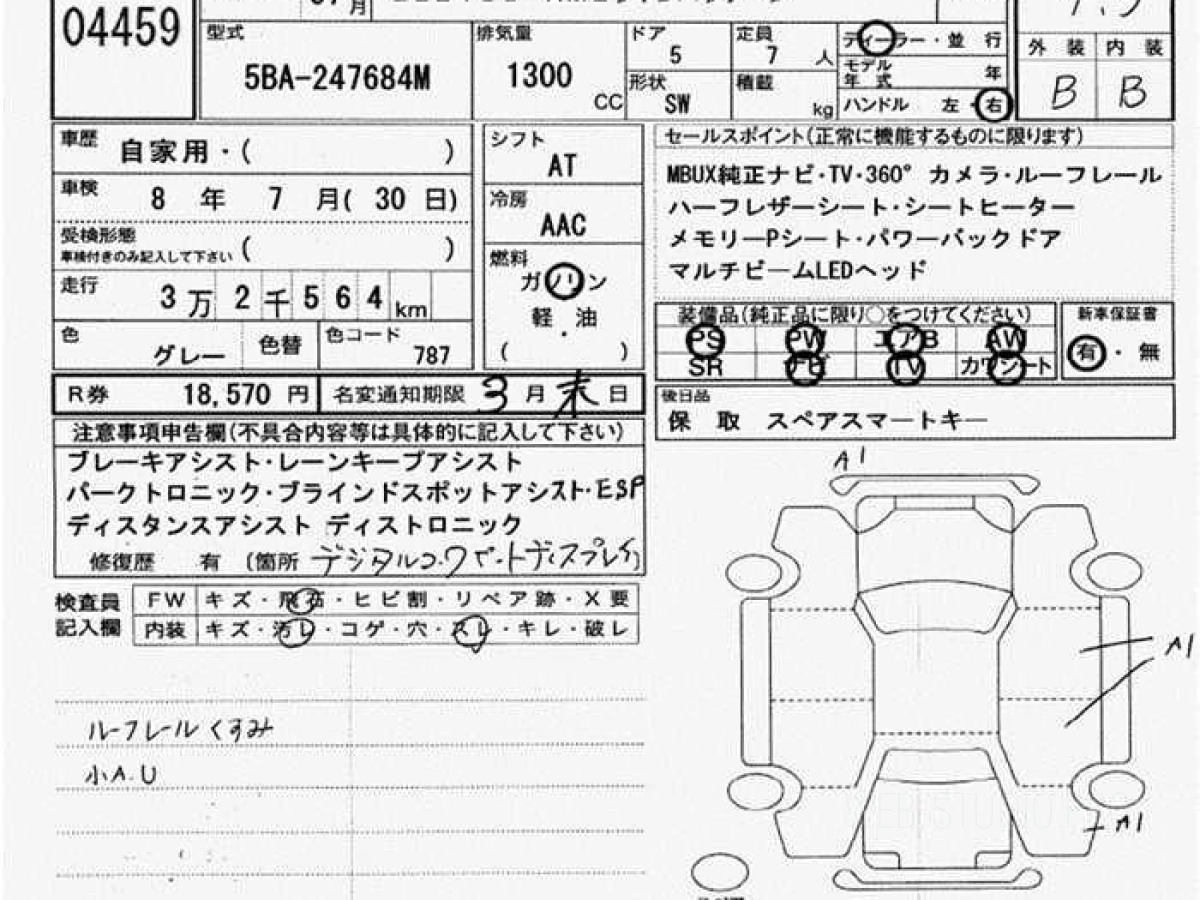 04459
型式
5BA-247684M
排気量
1300
CC
ドア
5
形状
SW
定員
7 人
積載
kg
ディーラー・並 行
モデル
年 式 年
ハンドル 左・右
外 装 内 装
B B
車歴 自家用・( )
車検 8 年 7 月( 30 日)
受検形態
車検付きのみ記入して下さい ( )
走行 3万2千564km
色 グレー 色替 色コード 787
シフト
AT
冷房
AAC
燃料
ガソリン
軽・油
( )
セールスポイント(正常に機能するものに限ります)
MBUX純正ナビ・TV・360°カメラ・ルーフレール
ハーフレザーシート・シートヒーター
メモリーPシート・パワーバックドア
マルチビームLEDヘッド
装備品(純正品に限り○をつけてください)
PS PW エアB AW
SR ナビ TV カワシート
新車保証書
有・無
R券 18,570 円 名変通知期限 3月末日
後日品
保 取 スペアスマートキー
注意事項申告欄(不具合内容等は具体的に記入して下さい)
ブレーキアシスト・レーンキープアシスト
パークトロニック・ブラインドスポットアシスト・ESP
ディスタンスアシスト ディストロニック
修復歴 有 〔箇所 デジタルコックピットディスプレイ〕
検査員
記入欄
FW キズ・飛石・ヒビ割・リペア跡・X要
内装 キズ・汚レ・コゲ・穴・スレ・キレ・破レ
ルーフレールくすみ
小A.U
A1
A1
A1